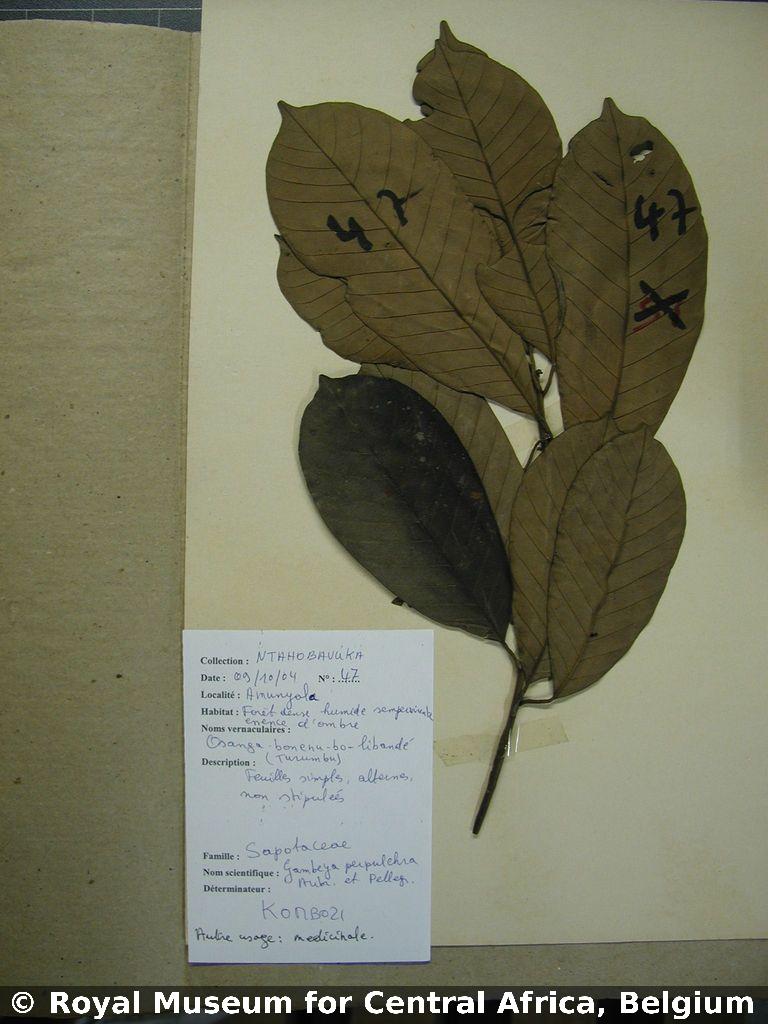 47
47
X
Collection : NTAHOBAVUKA
Date : 09/10/04 N° : 47
Localité : Amunyola
Habitat : Forêt dense humide
essence d'ombre
Noms vernaculaires :
Osanga-bonenu-bo-libandé
(Turumbu)
Description :
Feuilles simples, alternes,
non stipulées
Famille : Sapotaceae
Nom scientifique : Gambeya perpulchra
Aubr. et Pellegr.
Déterminateur :
KOMBOZI
Autre usage : medicinale.
© Royal Museum for Central Africa, Belgium